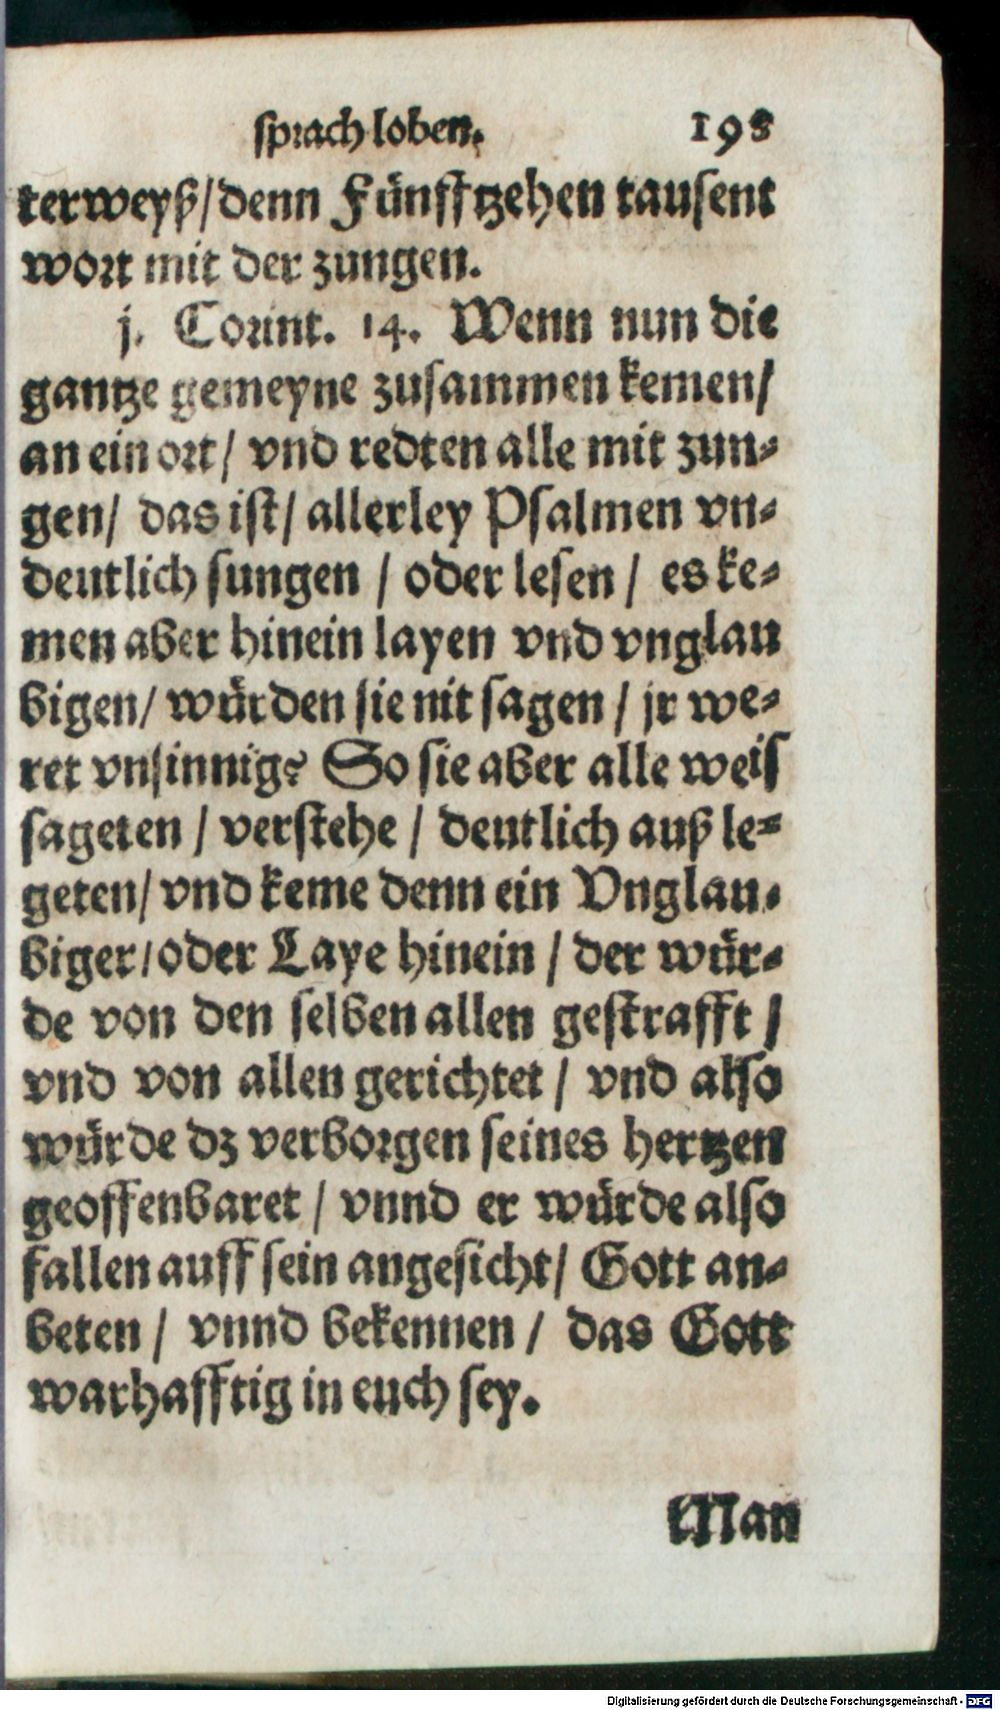 sprach loben. 198
terweyß/denn Fünfftzehen tausent
wort mit der zungen.
j. Corint. 14. Wenn nun die
gantze gemeyne zusammen kemen/
an ein ort/ vnd redten alle mit zun-
gen/ das ist/ allerley Psalmen vn-
deutlich sungen / oder lesen / es ke-
men aber hinein layen vnd vnglau
bigen/ würden sie nit sagen / jr we-
ret vnsinnig? So sie aber alle weis
sageten / verstehe / deutlich auß le-
geten/ vnd keme denn ein Vnglau-
biger/oder Laye hinein / der wür-
de von den selben allen gestrafft /
vnd von allen gerichtet / vnd also
würde dz verborgen seines hertzen
geoffenbaret / vnnd er würde also
fallen auff sein angesicht/ Gott an-
beten / vnnd bekennen / das Gott
warhafftig in euch sey.
Man
Digitalisierung gefördert durch die Deutsche Forschungsgemeinschaft - DFG